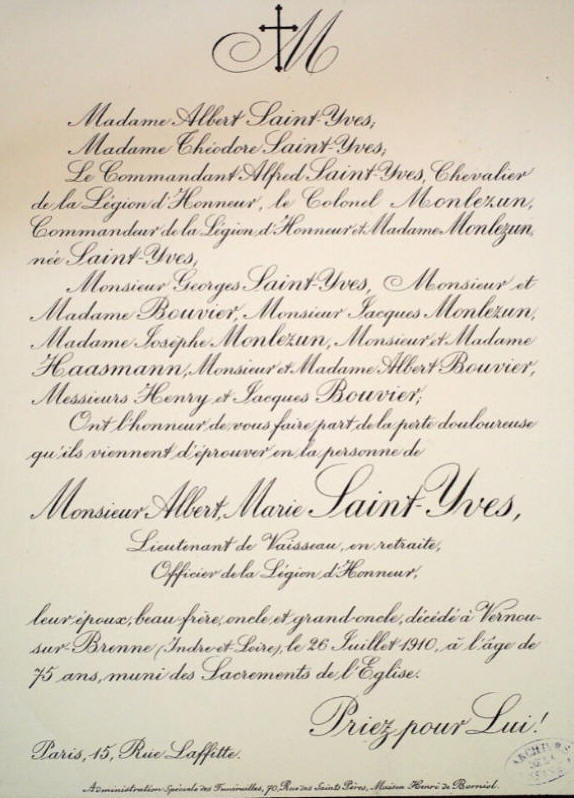 M
Madame Albert Saint-Yves,
Madame Théodore Saint-Yves,
Le Commandant Alfred Saint-Yves, Chevalier
de la Légion d'Honneur, le Colonel Monlezun,
Commandeur de la Légion d'Honneur et Madame Monlezun
née Saint-Yves,
Monsieur Georges Saint-Yves, Monsieur et
Madame Bouvier, Monsieur Jacques Monlezun,
Madame Josèphe Monlezun, Monsieur et Madame
Haasmann, Monsieur et Madame Albert Bouvier,
Messieurs Henry et Jacques Bouvier;
Ont l'honneur de vous faire part de la perte douloureuse
qu'ils viennent d'éprouver en la personne de
Monsieur Albert, Marie Saint-Yves,
Lieutenant de Vaisseau, en retraite,
Officier de la Légion d'Honneur,
leur époux, beau-frère, oncle et grand-oncle, décédé à Vernou-
sur-Brenne (Indre et Loire), le 26 Juillet 1910, à l'âge de
75 ans, muni des Sacrements de l'Eglise.
Priez pour Lui!
Paris, 15, Rue Laffitte.
Administration Spéciale des Funérailles, 70, Rue des Saints Pères, Maison Henri de Borniol.